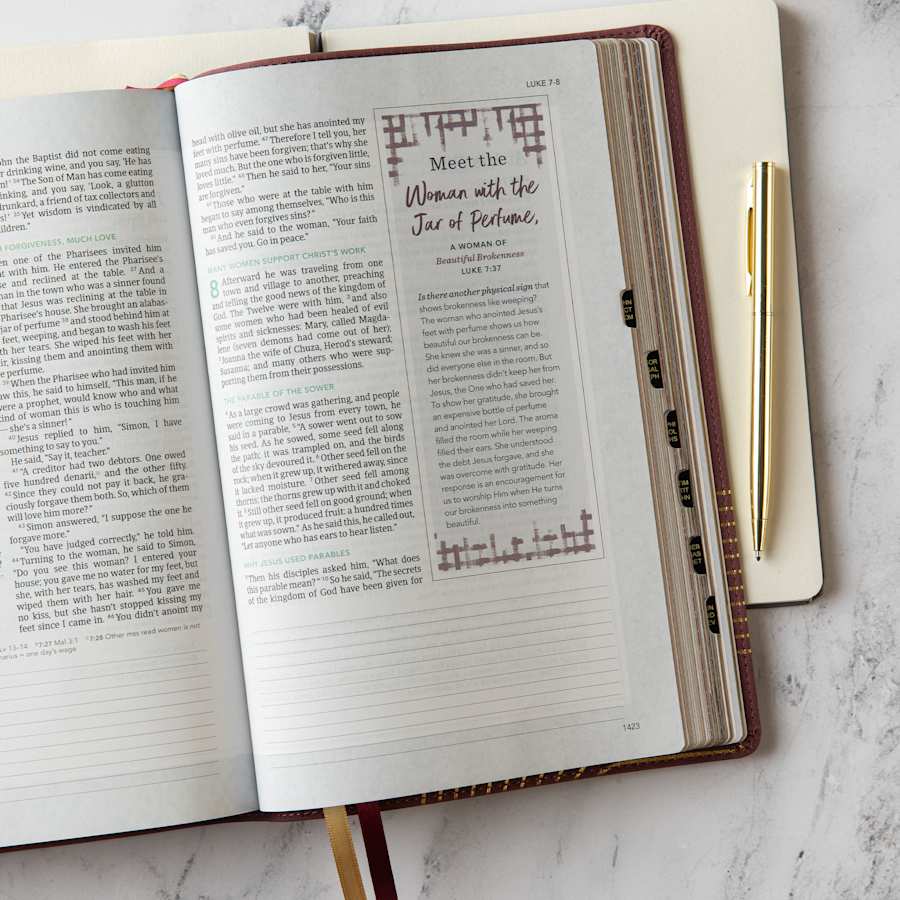 ohn the Baptist did not come eating
drinking wine, and you say, 'He has
'The Son of Man has come eating
inking, and you say, 'Look, a glutton
drunkard, a friend of tax collectors and
Yet wisdom is vindicated by all
FORGIVENESS, MUCH LOVE
en one of the Pharisees invited him
with him. He entered the Pharisee's
se and reclined at the table. 37 And a
man in the town who was a sinner found
that Jesus was reclining at the table in
Pharisee's house. She brought an alabas-
jar of perfume 38 and stood behind him at
feet, weeping, and began to wash his feet
with her tears. She wiped his feet with her
air, kissing them and anointing them with
perfume.
39 When the Pharisee who had invited him
aw this, he said to himself, "This man, if he
were a prophet, would know who and what
kind of woman this is who is touching him
—she's a sinner!"
40 Jesus replied to him, "Simon, I have
something to say to you."
He said, "Say it, teacher."
41 "A creditor had two debtors. One owed
five hundred denarii, and the other fifty.
42 Since they could not pay it back, he gra-
ciously forgave them both. So, which of them
will love him more?"
43 Simon answered, "I suppose the one he
forgave more."
"You have judged correctly," he told him.
44 Turning to the woman, he said to Simon,
"Do you see this woman? I entered your
house; you gave me no water for my feet, but
she, with her tears, has washed my feet and
wiped them with her hair. 45 You gave me
no kiss, but she hasn't stopped kissing my
feet since I came in. 46 You didn't anoint my
13–14 7:27 Mal 3:1 7:28 Other mss read women is not
narius = one day's wage
LUKE 7-8
head with olive oil, but she has anointed my
feet with perfume. 47 Therefore I tell you, her
many sins have been forgiven; that's why she
loved much. But the one who is forgiven little,
loves little." 48 Then he said to her, "Your sins
are forgiven."
49 Those who were at the table with him
began to say among themselves, "Who is this
man who even forgives sins?"
50 And he said to the woman, "Your faith
has saved you. Go in peace."
MANY WOMEN SUPPORT CHRIST'S WORK
8 Afterward he was traveling from one
town and village to another, preaching
and telling the good news of the kingdom of
God. The Twelve were with him, 2 and also
some women who had been healed of evil
spirits and sicknesses: Mary, called Magda-
lene (seven demons had come out of her);
3 Joanna the wife of Chuza, Herod's steward;
Susanna; and many others who were sup-
porting them from their possessions.
THE PARABLE OF THE SOWER
4 As a large crowd was gathering, and people
were coming to Jesus from every town, he
said in a parable, 5 "A sower went out to sow
his seed. As he sowed, some seed fell along
the path; it was trampled on, and the birds
of the sky devoured it. 6 Other seed fell on the
rock; when it grew up, it withered away, since
it lacked moisture. 7 Other seed fell among
thorns; the thorns grew up with it and choked
it. 8 Still other seed fell on good ground; when
it grew up, it produced fruit: a hundred times
what was sown." As he said this, he called out,
"Let anyone who has ears to hear listen."
WHY JESUS USED PARABLES
9 Then his disciples asked him, "What does
this parable mean?" 10 So he said, "The secrets
of the kingdom of God have been given for
Meet the
Woman with the
Jar of Perfume,
A WOMAN OF
Beautiful Brokenness
LUKE 7:37
Is there another physical sign that
shows brokenness like weeping?
The woman who anointed Jesus's
feet with perfume shows us how
beautiful our brokenness can be.
She knew she was a sinner, and so
did everyone else in the room. But
her brokenness didn't keep her from
Jesus, the One who had saved her.
To show her gratitude, she brought
an expensive bottle of perfume
and anointed her Lord. The aroma
filled the room while her weeping
filled their ears. She understood
the debt Jesus forgave, and she
was overcome with gratitude. Her
response is an encouragement for
us to worship Him when He turns
our brokenness into something
beautiful.
1423